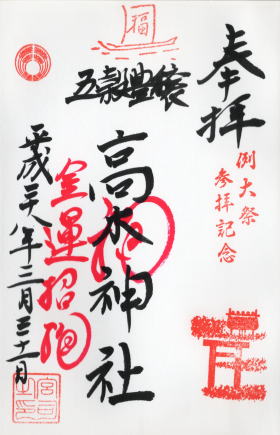 奉拝
例大祭
参拝記念
福
五穀豊穣
高木神社
金運招福
平成二十八年三月三十一日
宮司之印